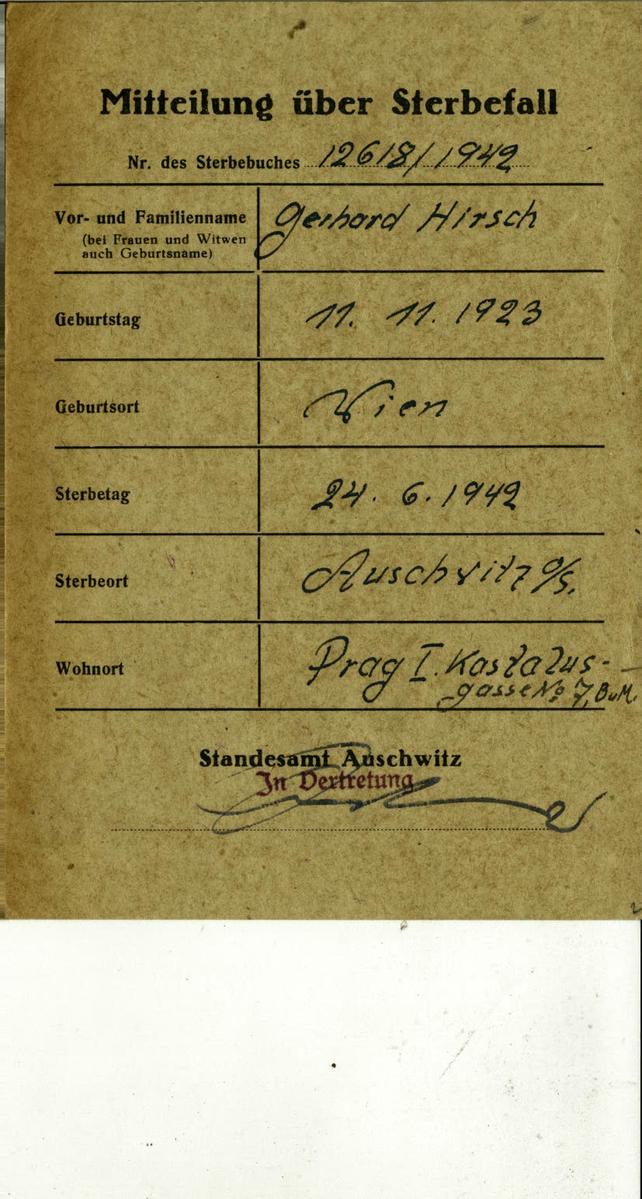 Mitteilung über Sterbefall
Nr. des Sterbebuches 12618/1942
Vor- und Familienname Gerhard Hirsch
(bei Frauen und Witwen
auch Geburtsname)
Geburtstag 11. 11. 1923
Geburtsort Wien
Sterbetag 24. 6. 1942
Sterbeort Auschwitz O/S.
Wohnort Prag I. Kastalus-
gasse No 7, B.u.M.
Standesamt Auschwitz
In Vertretung